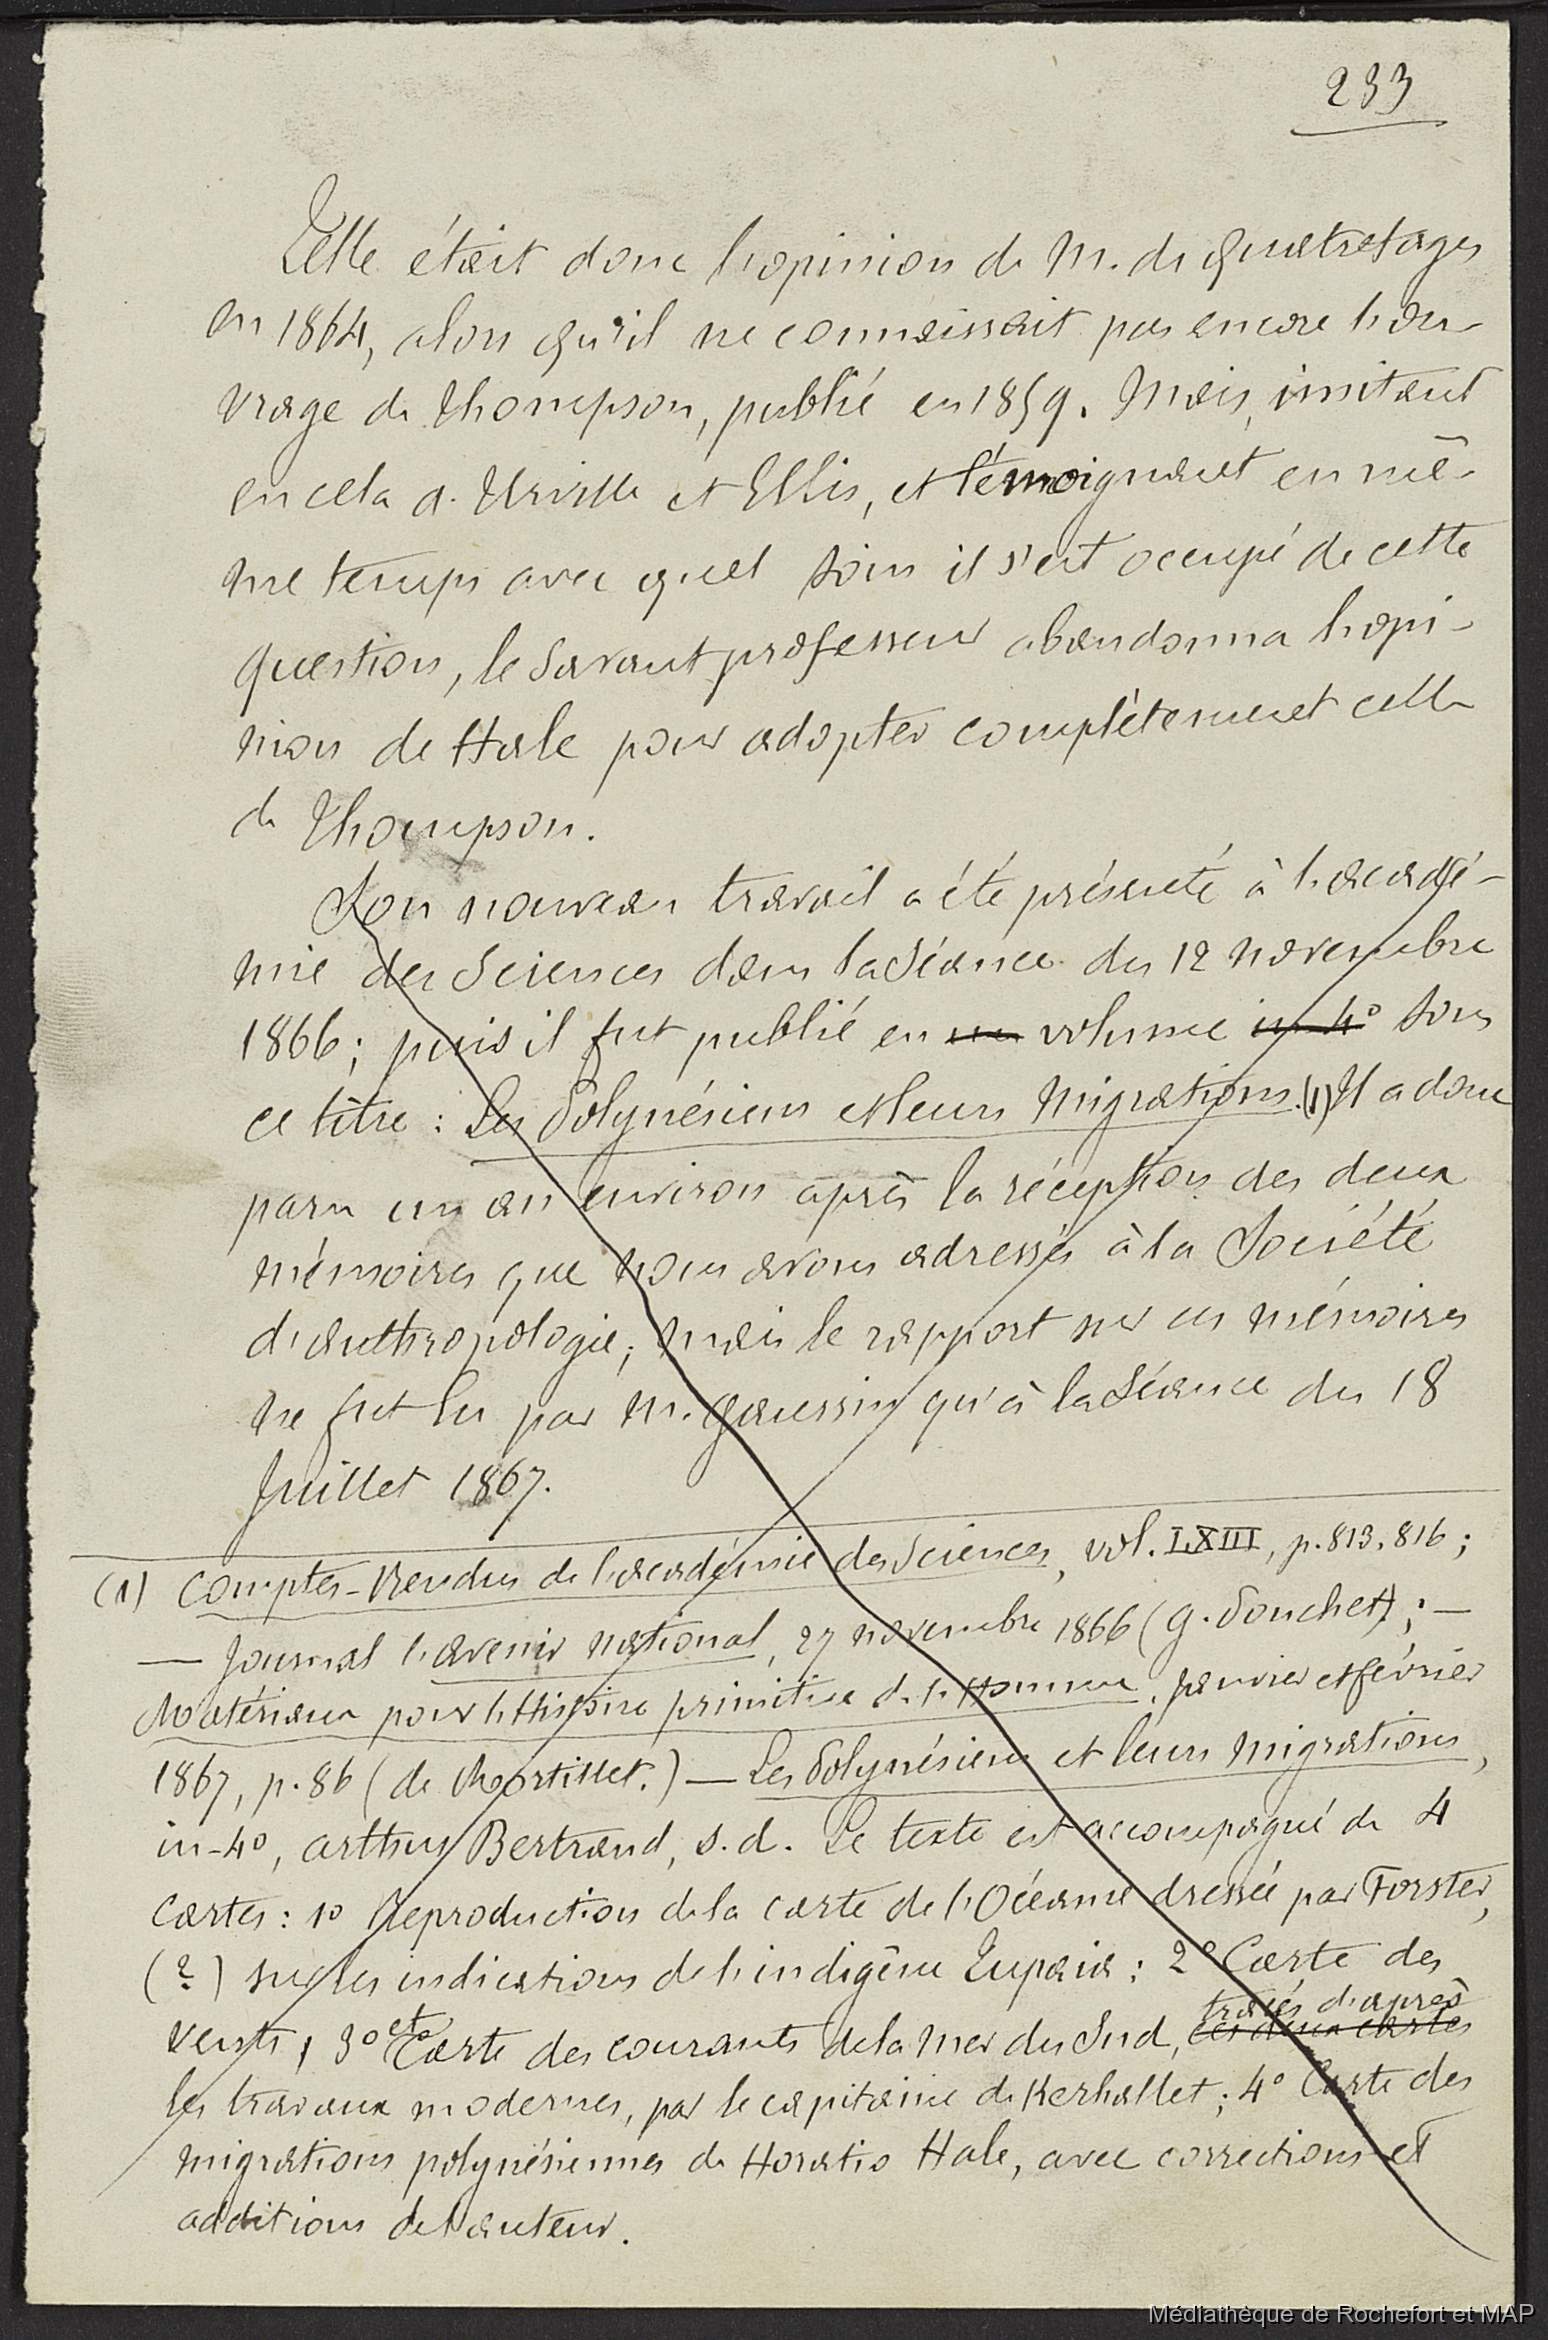 233
Telle était donc l'opinion de M. de Quatrefages
en 1864, alors qu'il ne connaissait pas encore l'ou-
vrage de Thompson, publié en 1859. Mais, imitant
en cela d'Urville et Ellis, et témoignant en mê-
me temps avec quel soin il s'est occupé de cette
question, le savant professeur abandonna l'opi-
nion de Hale pour adopter complètement celle
de Thompson.
Son nouveau travail a été présenté à l'acadé-
mie des Sciences dans la Séance du 12 novembre
1866; puis il fut publié en un volume in-4° sous
ce titre : Les Polynésiens et leurs Migrations.(1) Il a donc
paru un an environ après la réception des deux
mémoires que nous avons adressés à la Société
d'anthropologie; mais le rapport sur ces mémoires
ne fut lu par M. Gaussin qu'à la Séance du 18
Juillet 1867.
(1) Comptes-Rendus de l'académie des Sciences, vol. LXIII, p. 813, 816;
— Journal l'avenir national, 27 novembre 1866 (G. Pouchet); —
Matériaux pour l'Histoire primitive de l'Homme, janvier et février
1867, p. 86 (de Mortillet.) — Les Polynésiens et leurs migrations,
in-4°, arthus Bertrand, s.d. Le texte est accompagné de 4
Cartes : 1° Reproduction de la carte de l'Océanie dressée par Forster,
(?) sur les indications de l'indigène Tupaia : 2° Carte des
tracés d'après
vents, et 3° Carte des courants de la Mer du Sud, ces deux cartes
les travaux modernes, par le capitaine de Kerhallet; 4° Carte des
migrations polynésiennes de Horatio Hale, avec corrections et
additions de l'auteur.
Médiathèque de Rochefort et MAP